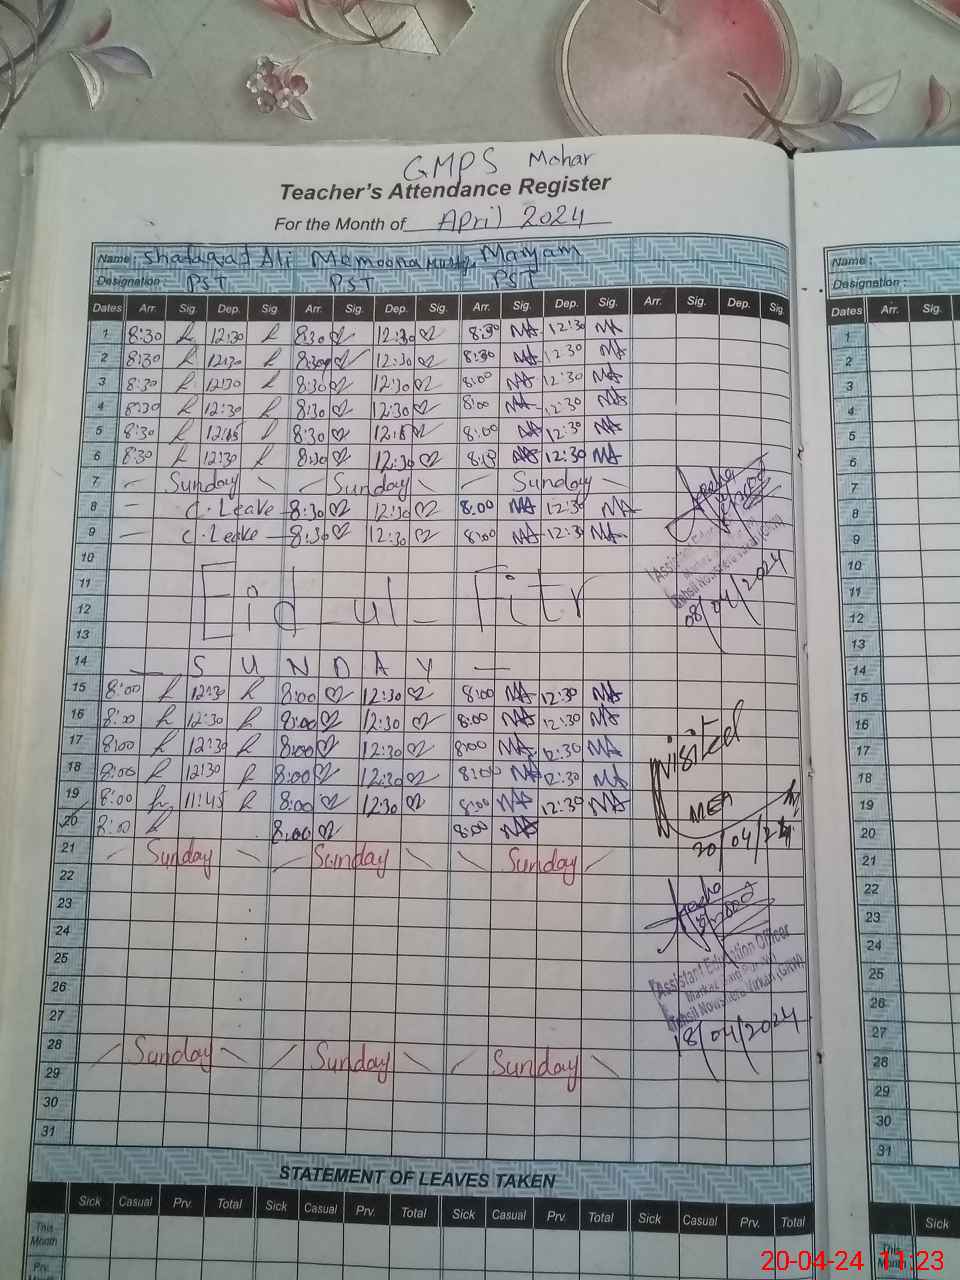 GMPS Mohar
Teacher's Attendance Register
For the Month of April 2024
Name : Shafaqat Ali Memoona Maryam Name :
Designation : PST PST PST Designation :
Dates Arr. Sig. Dep. Sig. Arr. Sig. Dep. Sig. Arr. Sig. Dep. Sig. Arr. Sig. Dep. Sig. Dates Arr. Sig.
1 8:30 12:30 8:30 12:30 8:30 MA 12:30 MA 1
2 8:30 12:30 8:30 12:30 8:30 MA 12:30 MA 2
3 8:30 12:30 8:30 12:30 8:00 MA 12:30 MA 3
4 8:30 12:30 8:30 12:30 8:00 MA 12:30 MA 4
5 8:30 8:30 8:00 MA 12:30 MA 5
6 8:30 12:30 8:30 12:30 MA 12:30 MA 6
7 – Sunday – Sunday – Sunday – 7
8 – C. Leave – 8:30 12:30 8:00 MA 12:30 MA 8
9 – C. Leave – 8:30 12:30 8:00 MA 12:30 MA 9
10 10
11 Eid_ul_Fitr 11
12 12
13 08/04/2024 13
14 — SUNDAY — 14
15 8:00 12:30 8:00 12:30 8:00 MA 12:30 MA 15
16 8:00 12:30 8:00 12:30 8:00 MA 12:30 MA 16
17 8:00 12:30 8:00 12:30 8:00 MA 12:30 MA Visited 17
18 8:00 12:30 8:00 12:30 8:00 MA 12:30 MA 18
19 8:00 11:45 8:00 12:30 8:00 MA 12:30 MA MEA 19
20 8:00 8:00 8:00 MA 20/04/24 20
21 Sunday Sunday Sunday 21
22 22
23 23
24 Assistant Education Officer 24
25 25
26 Tehsil Nowshera Virkan (GRW) 26
27 18/04/2024 27
28 Sunday Sunday Sunday 28
29 29
30 30
31 31
STATEMENT OF LEAVES TAKEN
Sick Casual Prv. Total Sick Casual Prv. Total Sick Casual Prv. Total Sick Casual Prv. Total Sick
This Month This Month
Prv.
20-04-24 11:23